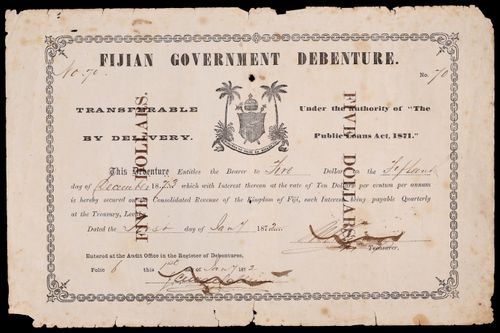 FIJIAN GOVERNMENT DEBENTURE.
No. 70.
No. 70
TRANSFERABLE
BY DELIVERY.
Under the authority of "The
Public Loans Act, 1871."
FIVE DOLLARS.
FIVE DOLLARS.
This Debenture Entitles the Bearer to Five Dollars on the
day of December 1873 which with Interest thereon at the rate of Ten Dollars per centum per annum
is hereby secured on the Consolidated Revenue of the Kingdom of Fiji, such Interest being payable Quarterly
at the Treasury, Levuka.
Dated the First day of Jany 1872
Treasurer.
Entered at the Audit Office in the Register of Debentures,
Folio 6 this 1st Jany 1872